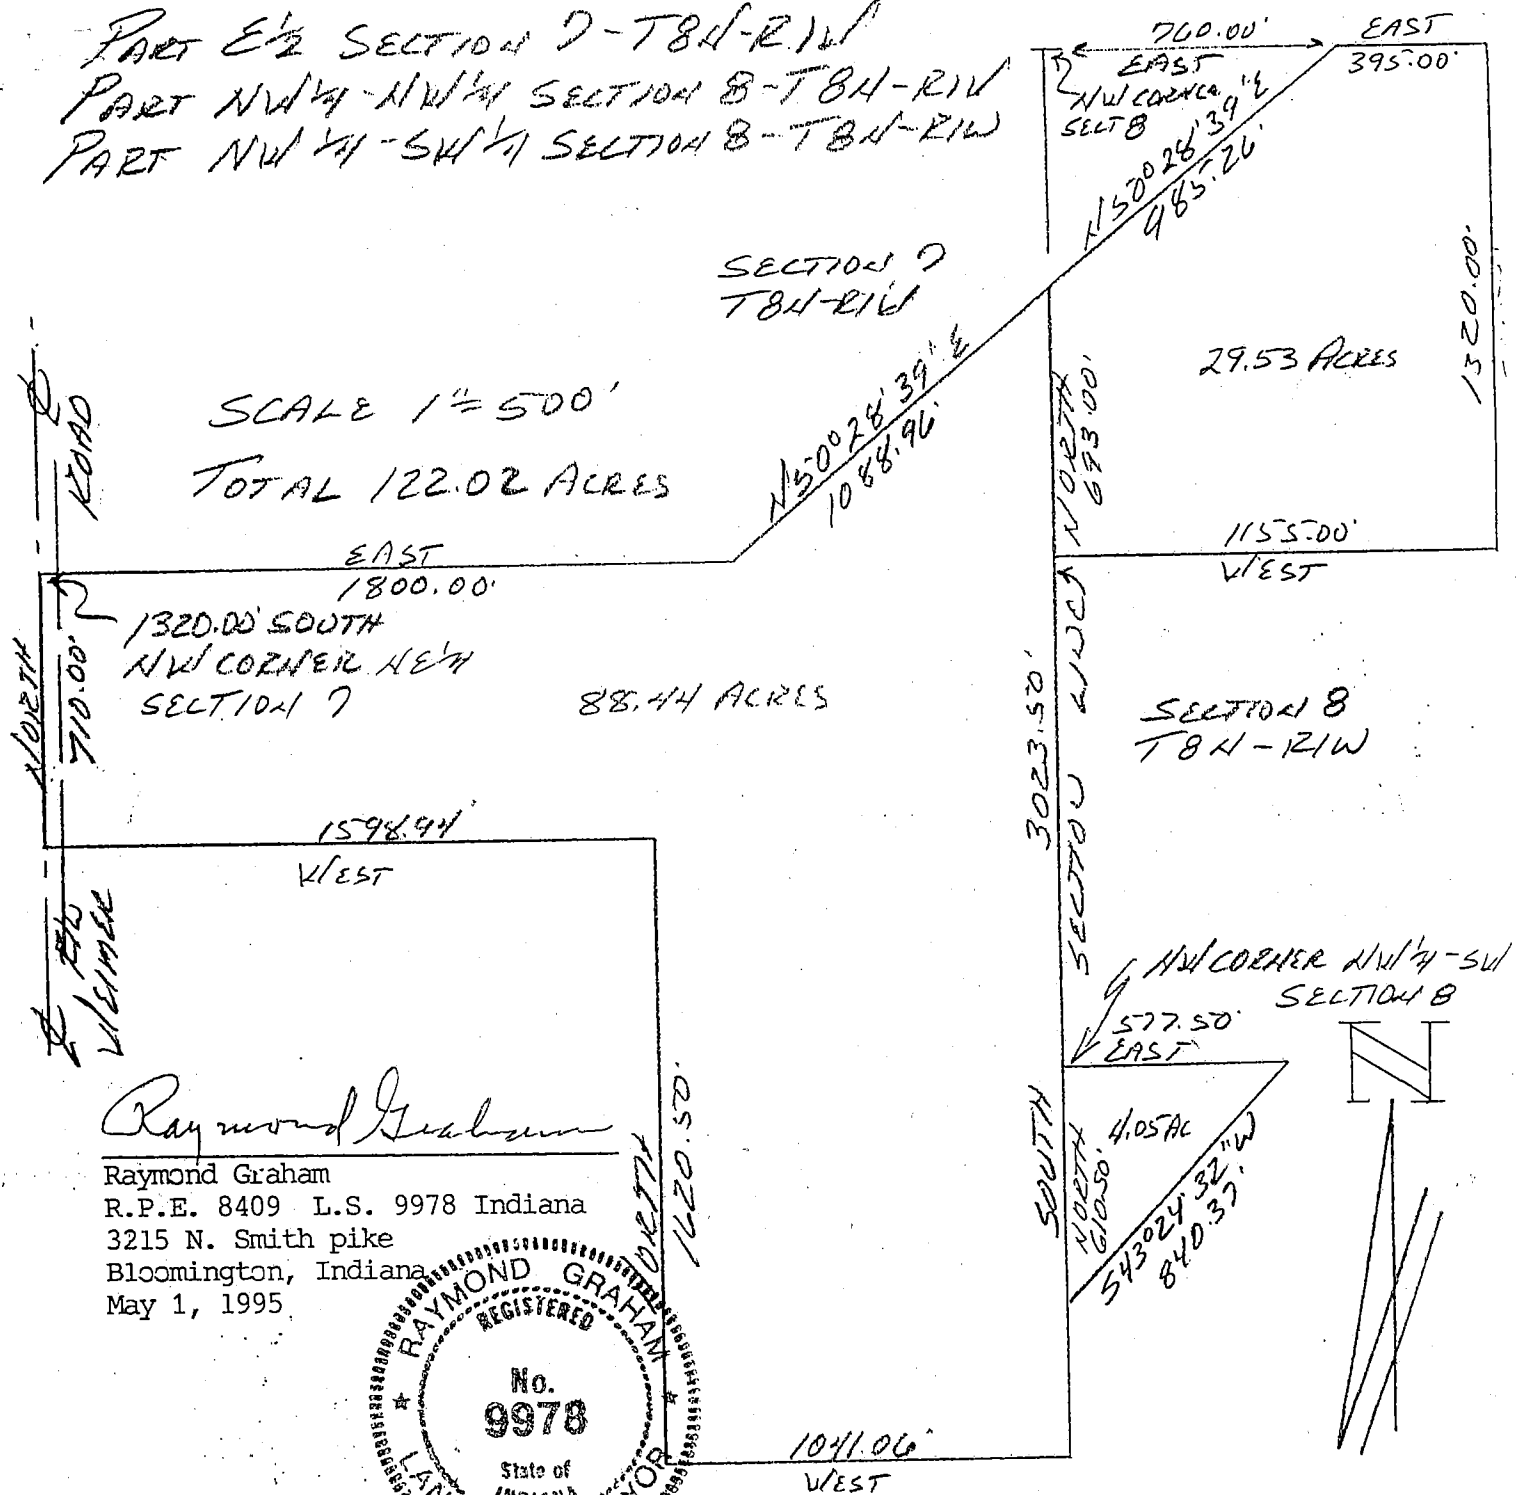 PART E½ SECTION 7-T8N-R1W
PART NW¼-NW¼ SECTION 8-T8N-R1W
PART NW¼-SW¼ SECTION 8-T8N-R1W
760.00'
EAST
EAST
395.00'
NW CORNER
SECT 8
N50°28'39"E
485.26'
1320.00'
29.53 ACRES
SECTION 7
T8N-R1W
N50°28'39"E
1088.96'
NORTH
693.00'
1155.00'
WEST
SCALE 1"=500'
TOTAL 122.02 ACRES
℄
ROAD
EAST
1800.00'
1320.00' SOUTH
NW CORNER NE¼
SECTION 7
NORTH
710.00'
88.44 ACRES
3023.50'
SECTION LINE
SECTION 8
T8N-R1W
1598.94'
WEST
℄
WEIMER
NW CORNER NW¼-SW
SECTION 8
577.50'
EAST
N
SOUTH
NORTH
610.50'
4.05 AC
S43°24'32"W
840.37'
NORTH
1620.50'
Raymond Graham
Raymond Graham
R.P.E. 8409 L.S. 9978 Indiana
3215 N. Smith pike
Bloomington, Indiana
May 1, 1995
RAYMOND GRAHAM
REGISTERED
No.
9978
State of
INDIANA
1041.06'
WEST